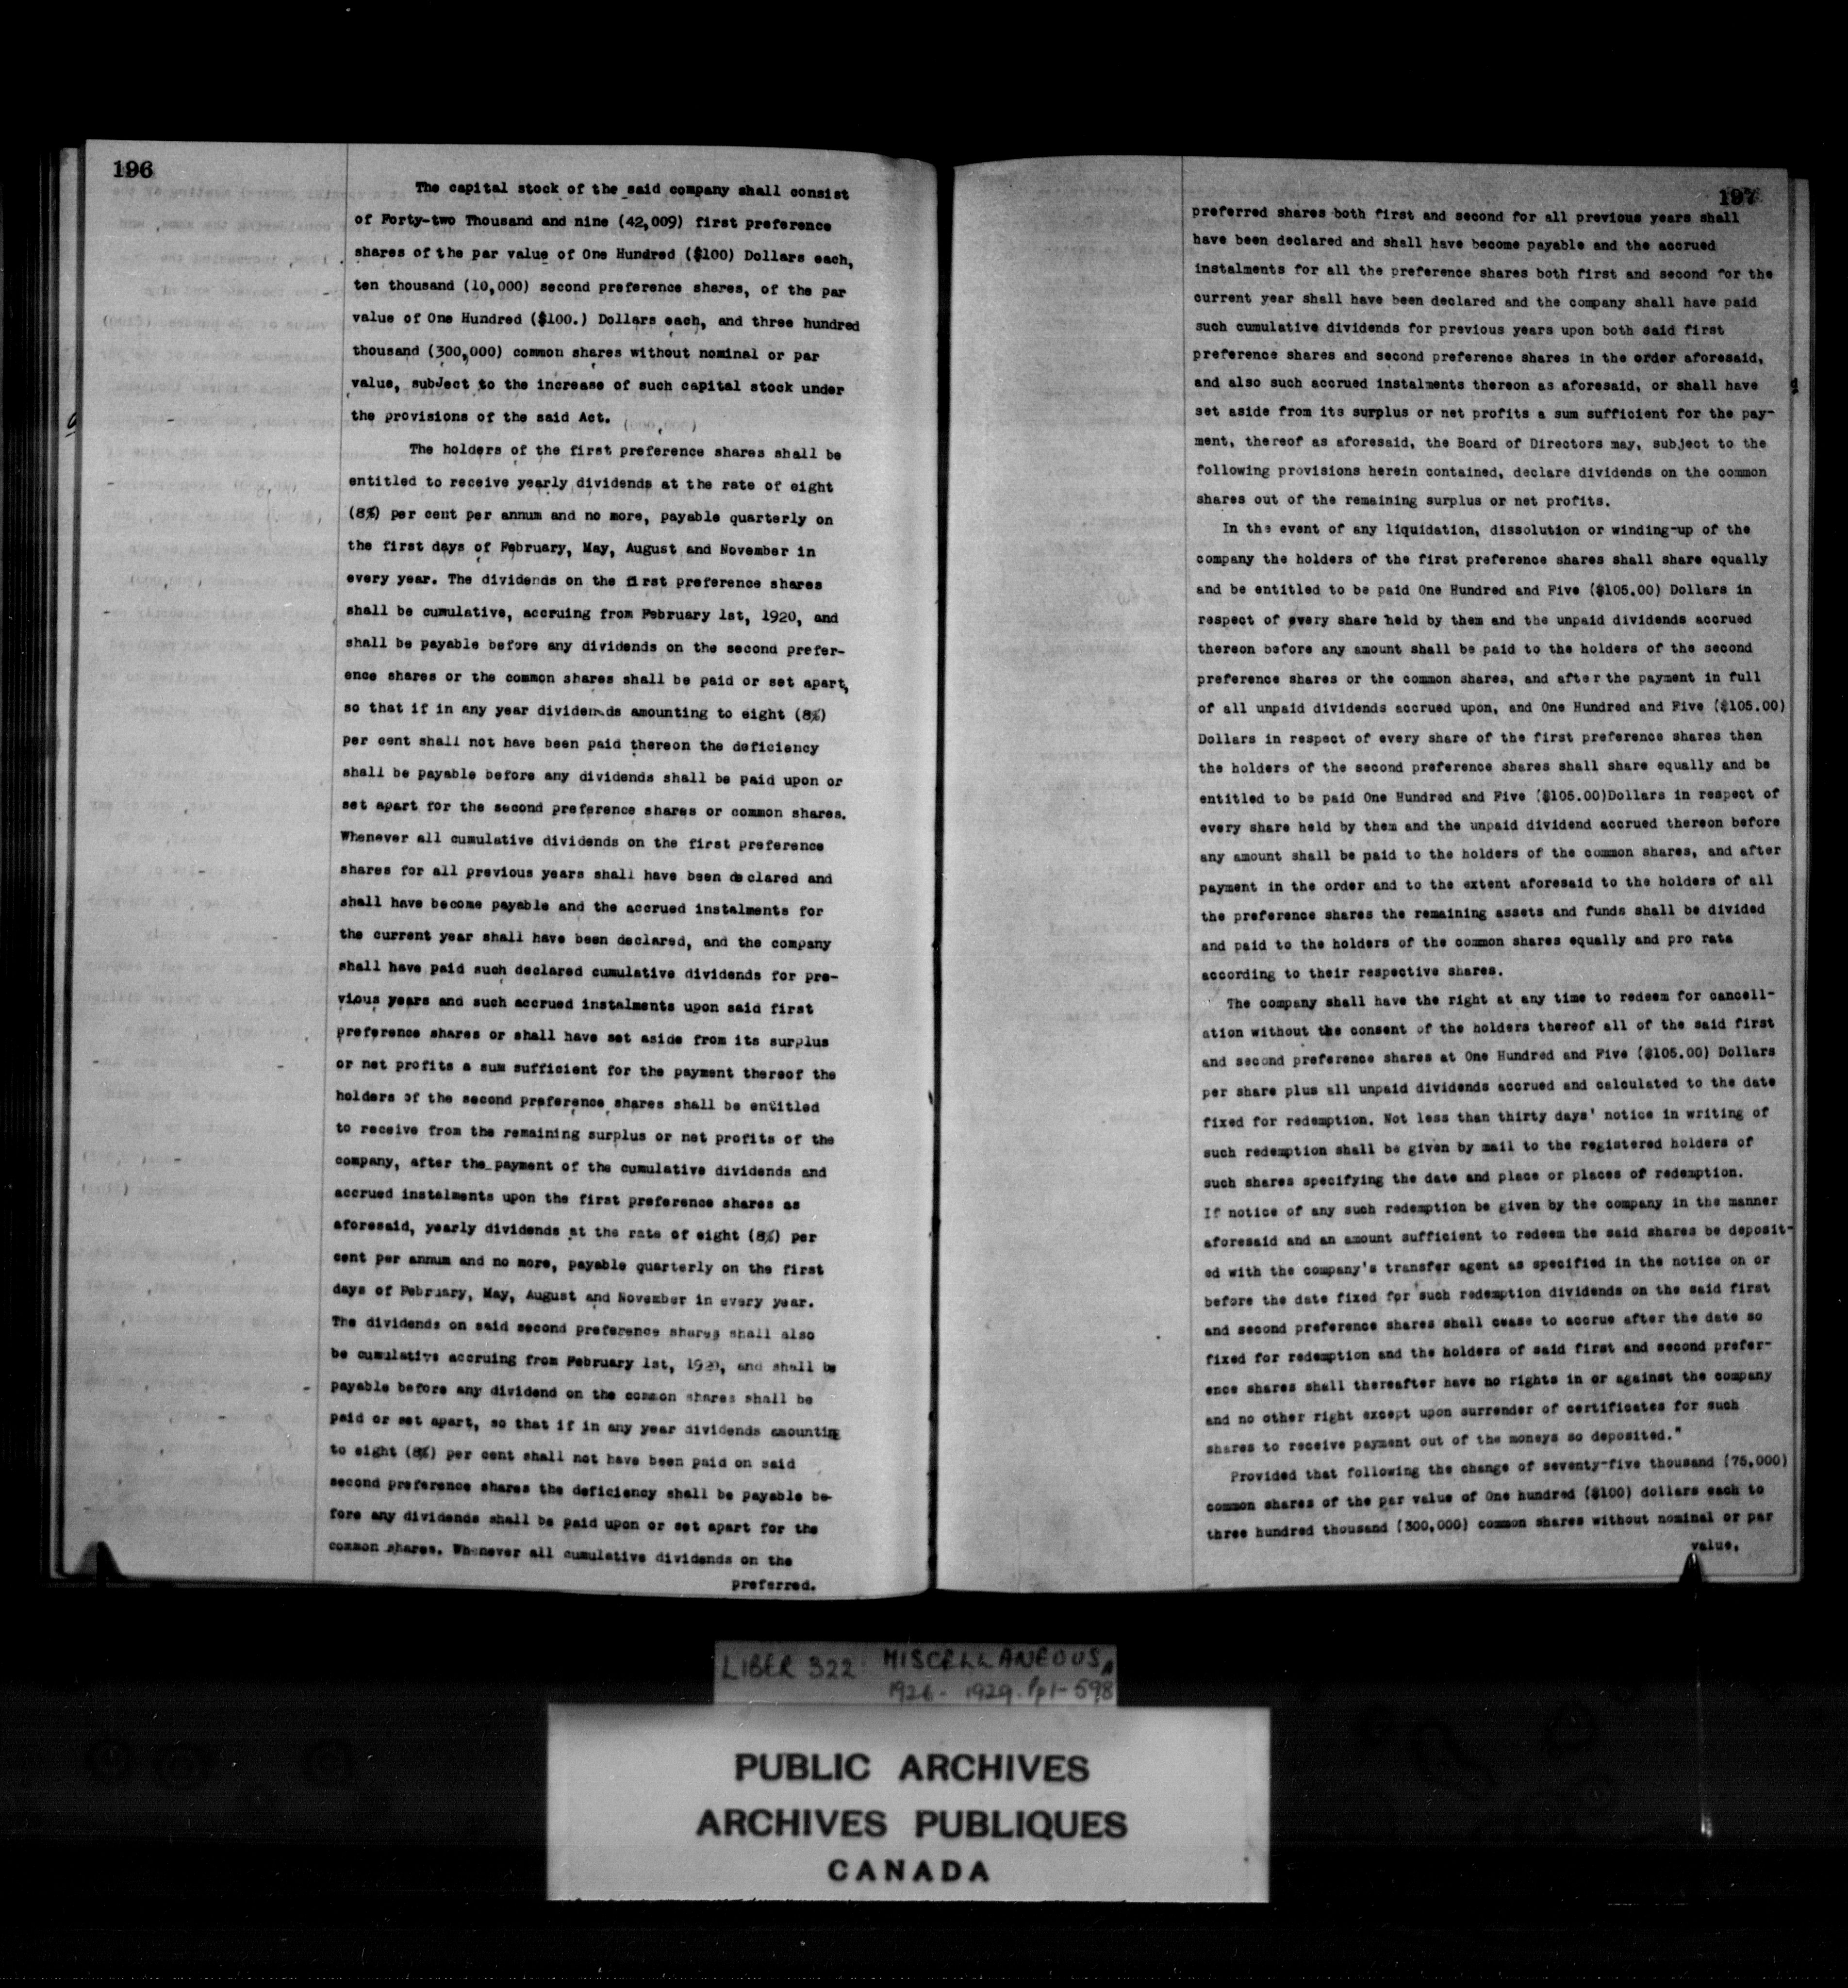 196
The capital stock of the said company shall consist
of Forty-two Thousand and nine (42,009) first preference
shares of the par value of One Hundred ($100) Dollars each,
ten thousand (10,000) second preference shares, of the par
value of One Hundred ($100.) Dollars each, and three hundred
thousand (300,000) common shares without nominal or par
value, subject to the increase of such capital stock under
the provisions of the said Act.
The holders of the first preference shares shall be
entitled to receive yearly dividends at the rate of eight
(8%) per cent per annum and no more, payable quarterly on
the first days of February, May, August and November in
every year. The dividends on the first preference shares
shall be cumulative, accruing from February 1st, 1920, and
shall be payable before any dividends on the second prefer-
ence shares or the common shares shall be paid or set apart,
so that if in any year dividends amounting to eight (8%)
per cent shall not have been paid thereon the deficiency
shall be payable before any dividends shall be paid upon or
set apart for the second preference shares or common shares.
Whenever all cumulative dividends on the first preference
shares for all previous years shall have been declared and
shall have become payable and the accrued instalments for
the current year shall have been declared, and the company
shall have paid such declared cumulative dividends for pre-
vious years and such accrued instalments upon said first
preference shares or shall have set aside from its surplus
or net profits a sum sufficient for the payment thereof the
holders of the second preference shares shall be entitled
to receive from the remaining surplus or net profits of the
company, after the payment of the cumulative dividends and
accrued instalments upon the first preference shares as
aforesaid, yearly dividends at the rate of eight (8%) per
cent per annum and no more, payable quarterly on the first
days of February, May, August and November in every year.
The dividends on said second preference shares shall also
be cumulative accruing from February 1st, 1920, and shall be
payable before any dividend on the common shares shall be
paid or set apart, so that if in any year dividends amounting
to eight (8%) per cent shall not have been paid on said
second preference shares the deficiency shall be payable be-
fore any dividends shall be paid upon or set apart for the
common shares. Whenever all cumulative dividends on the
preferred.
197
preferred shares both first and second for all previous years shall
have been declared and shall have become payable and the accrued
instalments for all the preference shares both first and second for the
current year shall have been declared and the company shall have paid
such cumulative dividends for previous years upon both said first
preference shares and second preference shares in the order aforesaid,
and also such accrued instalments thereon as aforesaid, or shall have
set aside from its surplus or net profits a sum sufficient for the pay-
ment, thereof as aforesaid, the Board of Directors may, subject to the
following provisions herein contained, declare dividends on the common
shares out of the remaining surplus or net profits.
In the event of any liquidation, dissolution or winding-up of the
company the holders of the first preference shares shall share equally
and be entitled to be paid One Hundred and Five ($105.00) Dollars in
respect of every share held by them and the unpaid dividends accrued
thereon before any amount shall be paid to the holders of the second
preference shares or the common shares, and after the payment in full
of all unpaid dividends accrued upon, and One Hundred and Five ($105.00)
Dollars in respect of every share of the first preference shares then
the holders of the second preference shares shall share equally and be
entitled to be paid One Hundred and Five ($105.00)Dollars in respect of
every share held by them and the unpaid dividend accrued thereon before
any amount shall be paid to the holders of the common shares, and after
payment in the order and to the extent aforesaid to the holders of all
the preference shares the remaining assets and funds shall be divided
and paid to the holders of the common shares equally and pro rata
according to their respective shares.
The company shall have the right at any time to redeem for cancell-
ation without the consent of the holders thereof all of the said first
and second preference shares at One Hundred and Five ($105.00) Dollars
per share plus all unpaid dividends accrued and calculated to the date
fixed for redemption. Not less than thirty days' notice in writing of
such redemption shall be given by mail to the registered holders of
such shares specifying the date and place or places of redemption.
If notice of any such redemption be given by the company in the manner
aforesaid and an amount sufficient to redeem the said shares be deposit-
ed with the company's transfer agent as specified in the notice on or
before the date fixed for such redemption dividends on the said first
and second preference shares shall cease to accrue after the date so
fixed for redemption and the holders of said first and second prefer-
ence shares shall thereafter have no rights in or against the company
and no other right except upon surrender of certificates for such
shares to receive payment out of the moneys so deposited."
Provided that following the change of seventy-five thousand (75,000)
common shares of the par value of One hundred ($100) dollars each to
three hundred thousand (300,000) common shares without nominal or par
value.
LIBER 322 MISCELLANEOUS,
1926 - 1929. Pp 1-598
PUBLIC ARCHIVES
ARCHIVES PUBLIQUES
CANADA